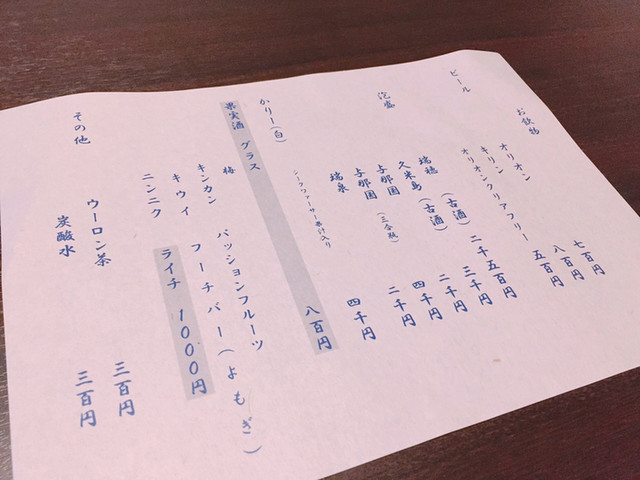 お飲物
ビール
オリオン 七百円
キリン 八百円
オリオンクリアフリー 五百円
泡盛
瑞穂(古酒) 二千五百円
久米島(古酒) 三千円
与那国(三合瓶) 二千円
与那国 四千円
瑞泉 二千円
かりー(白) 四千円
シークヮーサー果汁入り
果実酒 グラス 八百円
梅 パッションフルーツ
キンカン フーチバー(よもぎ)
キウイ ライチ 1000円
ニンニク
その他
ウーロン茶 三百円
炭酸水 三百円